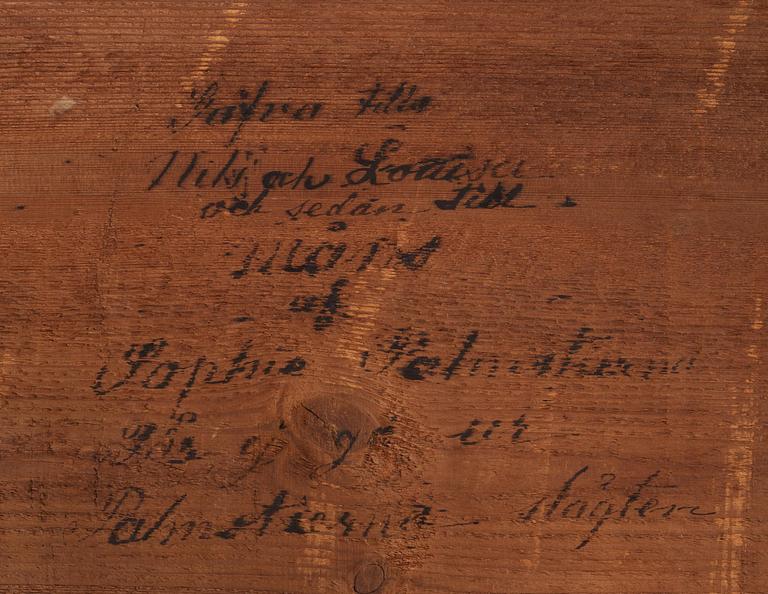 Gåfva till
Nils och Lovisa
och sedan till
Måns
af
Sophie Palmstierna
Får ej gå ur
Palmstierna slägten